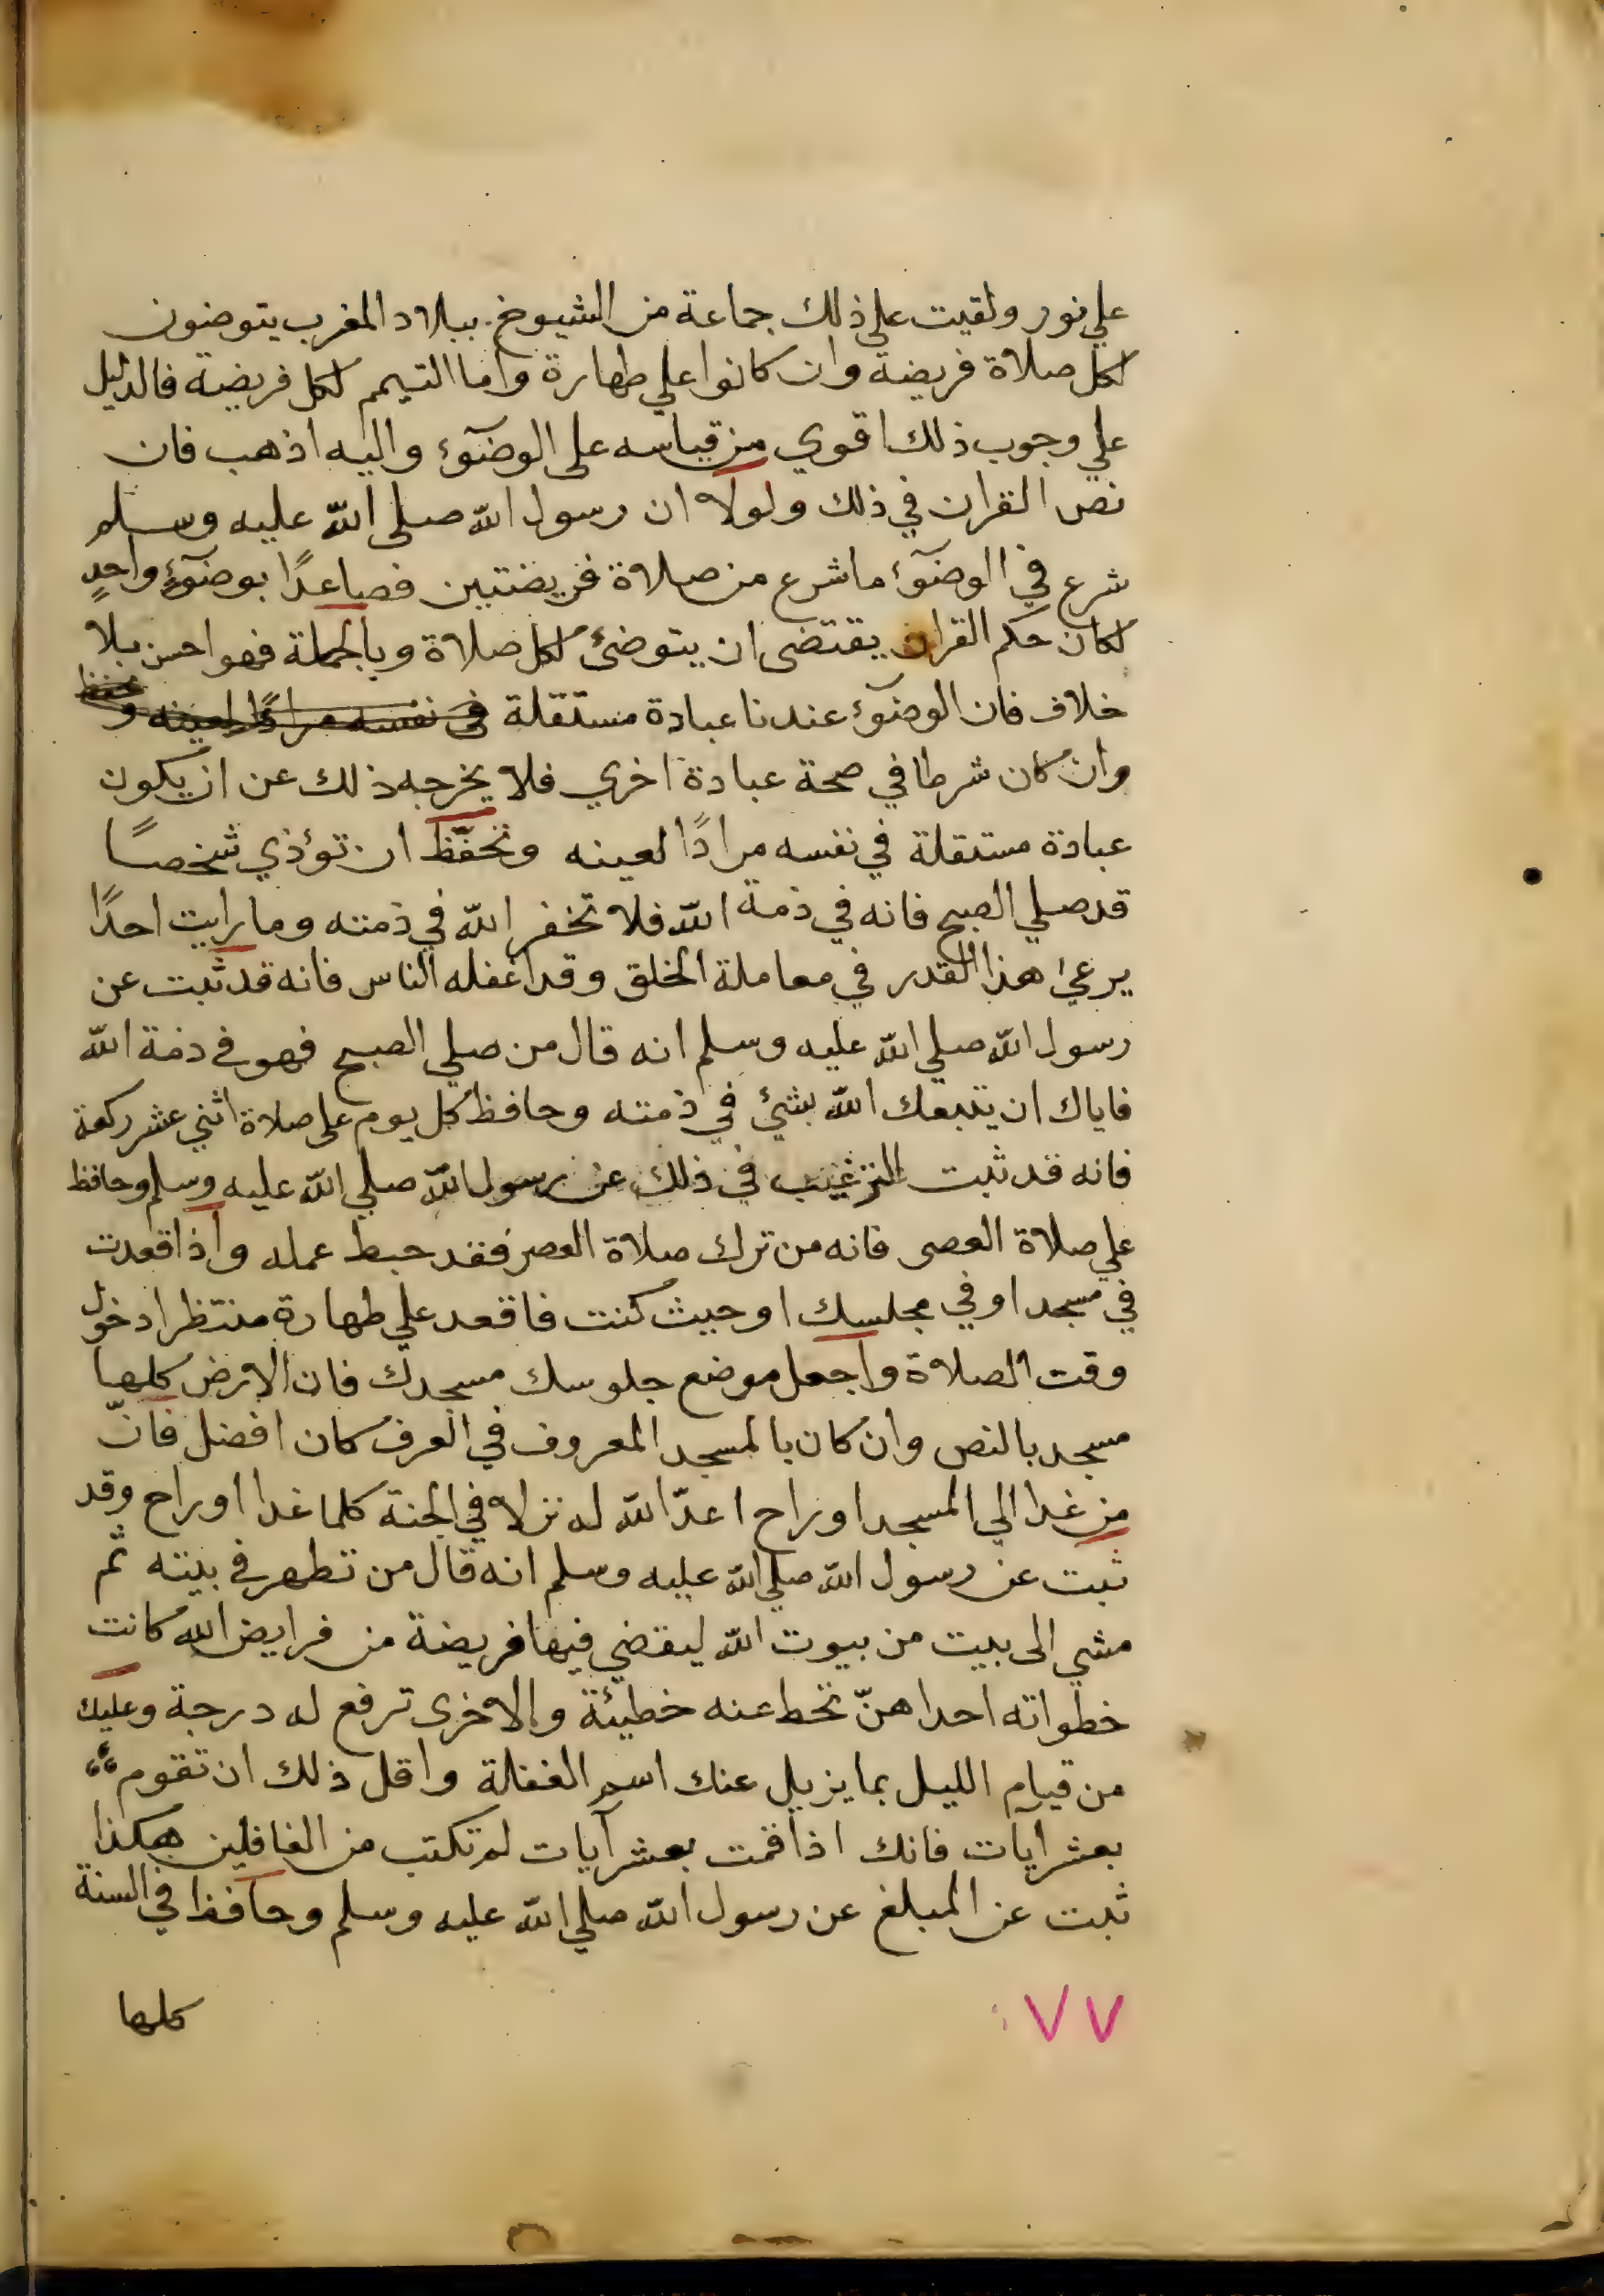 علي نور ولقيت على ذلك جماعة من الشيوخ ببلاد المغرب يتوضون
لكل صلاة فريضة وان كانوا علي طهارة واما التيمم لكل فريضة فالدليل
علي وجوب ذلك اقوي من قياسه على الوضوء واليه اذهب فان
نص القران في ذلك ولولا ان رسول الله صلى الله عليه وسلم
شرع في الوضوء ما شرع من صلاة فريضتين فصاعدًا بوضوءٍ واحدٍ
لكان حكم القران يقتضى ان يتوضئ لكل صلاة وبالجملة فهو احسن بلا
خلاف فان الوضوء عندنا عبادة مستقلة في نفسه مرادًا لعينه و تحفظ
وان كان شرطا في صحة عبادة اخري فلا يخرجه ذلك عن ان يكون
عبادة مستقلة في نفسه مرادًا لعينه وتحفّظ ان تؤذي شخصًا
قد صلي الصبح فانه في ذمة الله فلا تخفر الله في ذمته وما رايت احدًا
يرعى هذا القدر في معاملة الخلق وقد اغفله الناس فانه قد ثبت عن
رسول الله صلي الله عليه وسلم انه قال من صلي الصبح فهو في ذمة الله
فاياك ان يتبعك الله بشئ في ذمته وحافظ كل يوم على صلاة اثني عشر ركعة
فانه قد ثبت الترغيب في ذلك عن رسول الله صلي الله عليه وسلم وحافظ
علي صلاة العصر فانه من ترك صلاة العصر فقد حبط عمله واذا قعدت
في مسجد او في مجلسك او حيث كنت فاقعد علي طهارة منتظرا دخول
وقت الصلاة واجعل موضع جلوسك مسجدك فان الارض كلها
مسجد بالنص وان كان بالمسجد المعروف في العرف كان افضل فانّ
من غدا الي المسجد او راح اعدّ الله له نزلا في الجنة كلما غدا او راح وقد
ثبت عن رسول الله صلي الله عليه وسلم انه قال من تطهر في بيته ثم
مشي الى بيت من بيوت الله ليقضي فيها فريضة من فرايض الله كانت
خطواته احداهنّ تحط عنه خطيئة والاخرى ترفع له درجة وعليك
من قيام الليل بما يزيل عنك اسم الغفلة واقل ذلك ان تقوم
بعشر ايات فانك اذا قمت بعشر آيات لم تكتب من الغافلين هكذا
ثبت عن المبلغ عن رسول الله صلي الله عليه وسلم وحافظ في السنة
كلها
٧٧